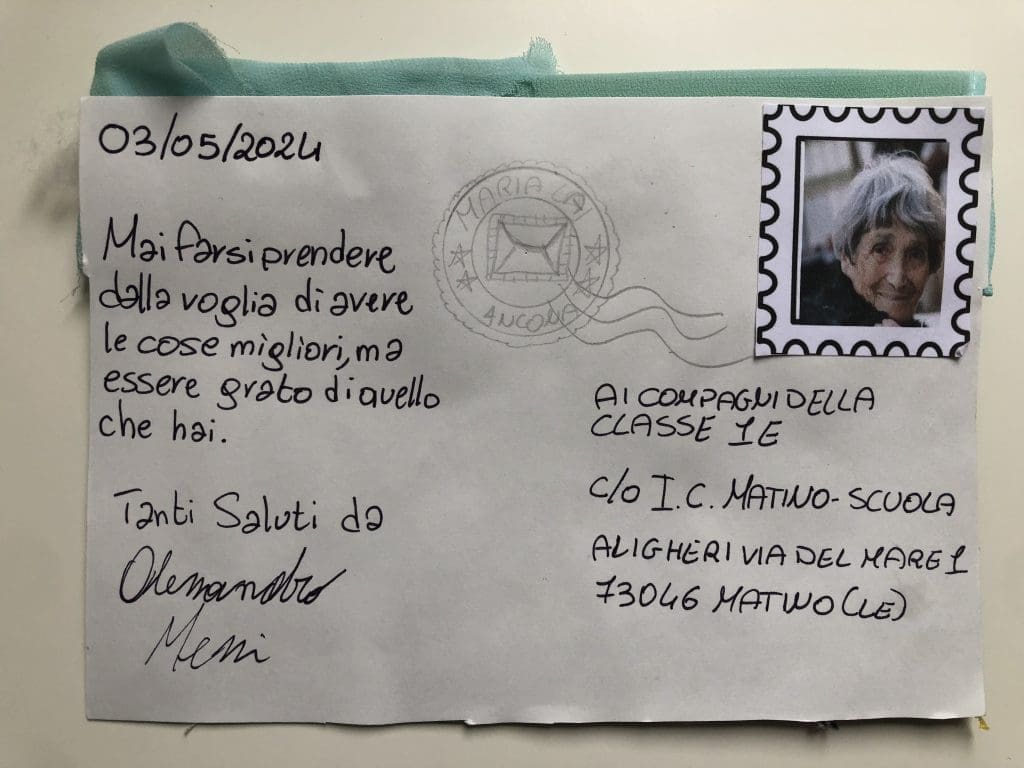 03/05/2024
Mai farsi prendere
dalla voglia di avere
le cose migliori, ma
essere grato di quello
che hai.
Tanti Saluti da
Alessandro
Messi
MARIA LAI
ANCONA
AI COMPAGNI DELLA
CLASSE 1E
c/o I.C. MATINO-SCUOLA
ALIGHERI VIA DEL MARE 1
73046 MATINO (LE)